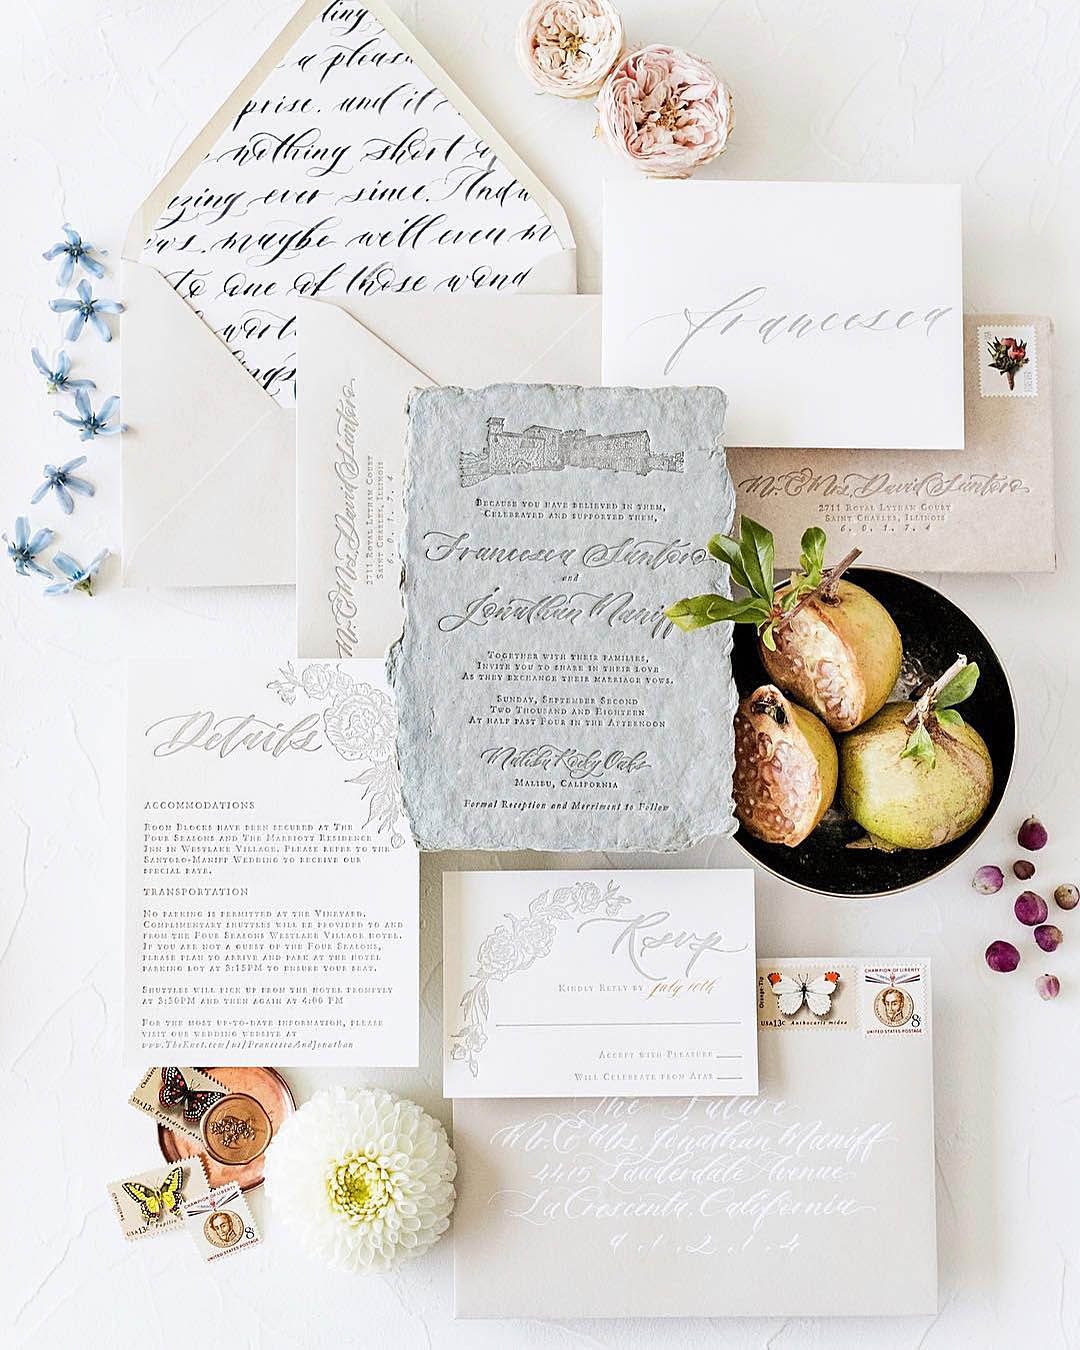 ling
a pleasu
prise. and it
nothing short of
zing ever since. And w
ows, maybe we'll even m
to one of those wond
francesca
FOREVER
Mr. & Mrs. David Santoro
2711 Royal Lytham Court
Saint Charles, Illinois
6.0.1.7.4
Mr. & Mrs. David Santoro
2711 Royal Lytham Court
Saint Charles, Illinois
6.0.1.7.4
Because you have believed in them,
Celebrated and supported them,
Francesca Santoro
and
Jonathan Maniff
Together with their families,
Invite you to share in their love
As they exchange their marriage vows.
Sunday, September Second
Two Thousand and Eighteen
At half past Four in the Afternoon
Malibu Rocky Oaks
Malibu, California
Formal Reception and Merriment to Follow
Details
ACCOMMODATIONS
Room Blocks have been secured at The
Four Seasons and The Marriott Residence
Inn in Westlake Village. Please refer to the
Santoro-Maniff Wedding to receive our
special rate.
TRANSPORTATION
No parking is permitted at the Vineyard.
Complimentary shuttles will be provided to and
from the Four Seasons Westlake Village Hotel.
If you are not a guest of the Four Seasons,
please plan to arrive and park at the hotel
parking lot at 3:15PM to ensure your seat.
Shuttles will pick up from the hotel promptly
at 3:30PM and then again at 4:00 PM
For the most up-to-date information, please
visit our wedding website at
www.TheKnot.com/us/FrancescaAndJonathan
Rsvp
Kindly Reply by July 10th
Accept with Pleasure
Will Celebrate from Afar
Orange-Tip
USA13c Anthocaris midea
CHAMPION OF LIBERTY
8¢
UNITED STATES POSTAGE
The Future
Mr. & Mrs. Jonathan Maniff
4415 Lauderdale Avenue
La Crescenta, California
9.1.2.1.4
USA13c
USA13c Papilio
CHAMPION OF LIBERTY
8¢
UNITED STATES POSTAGE